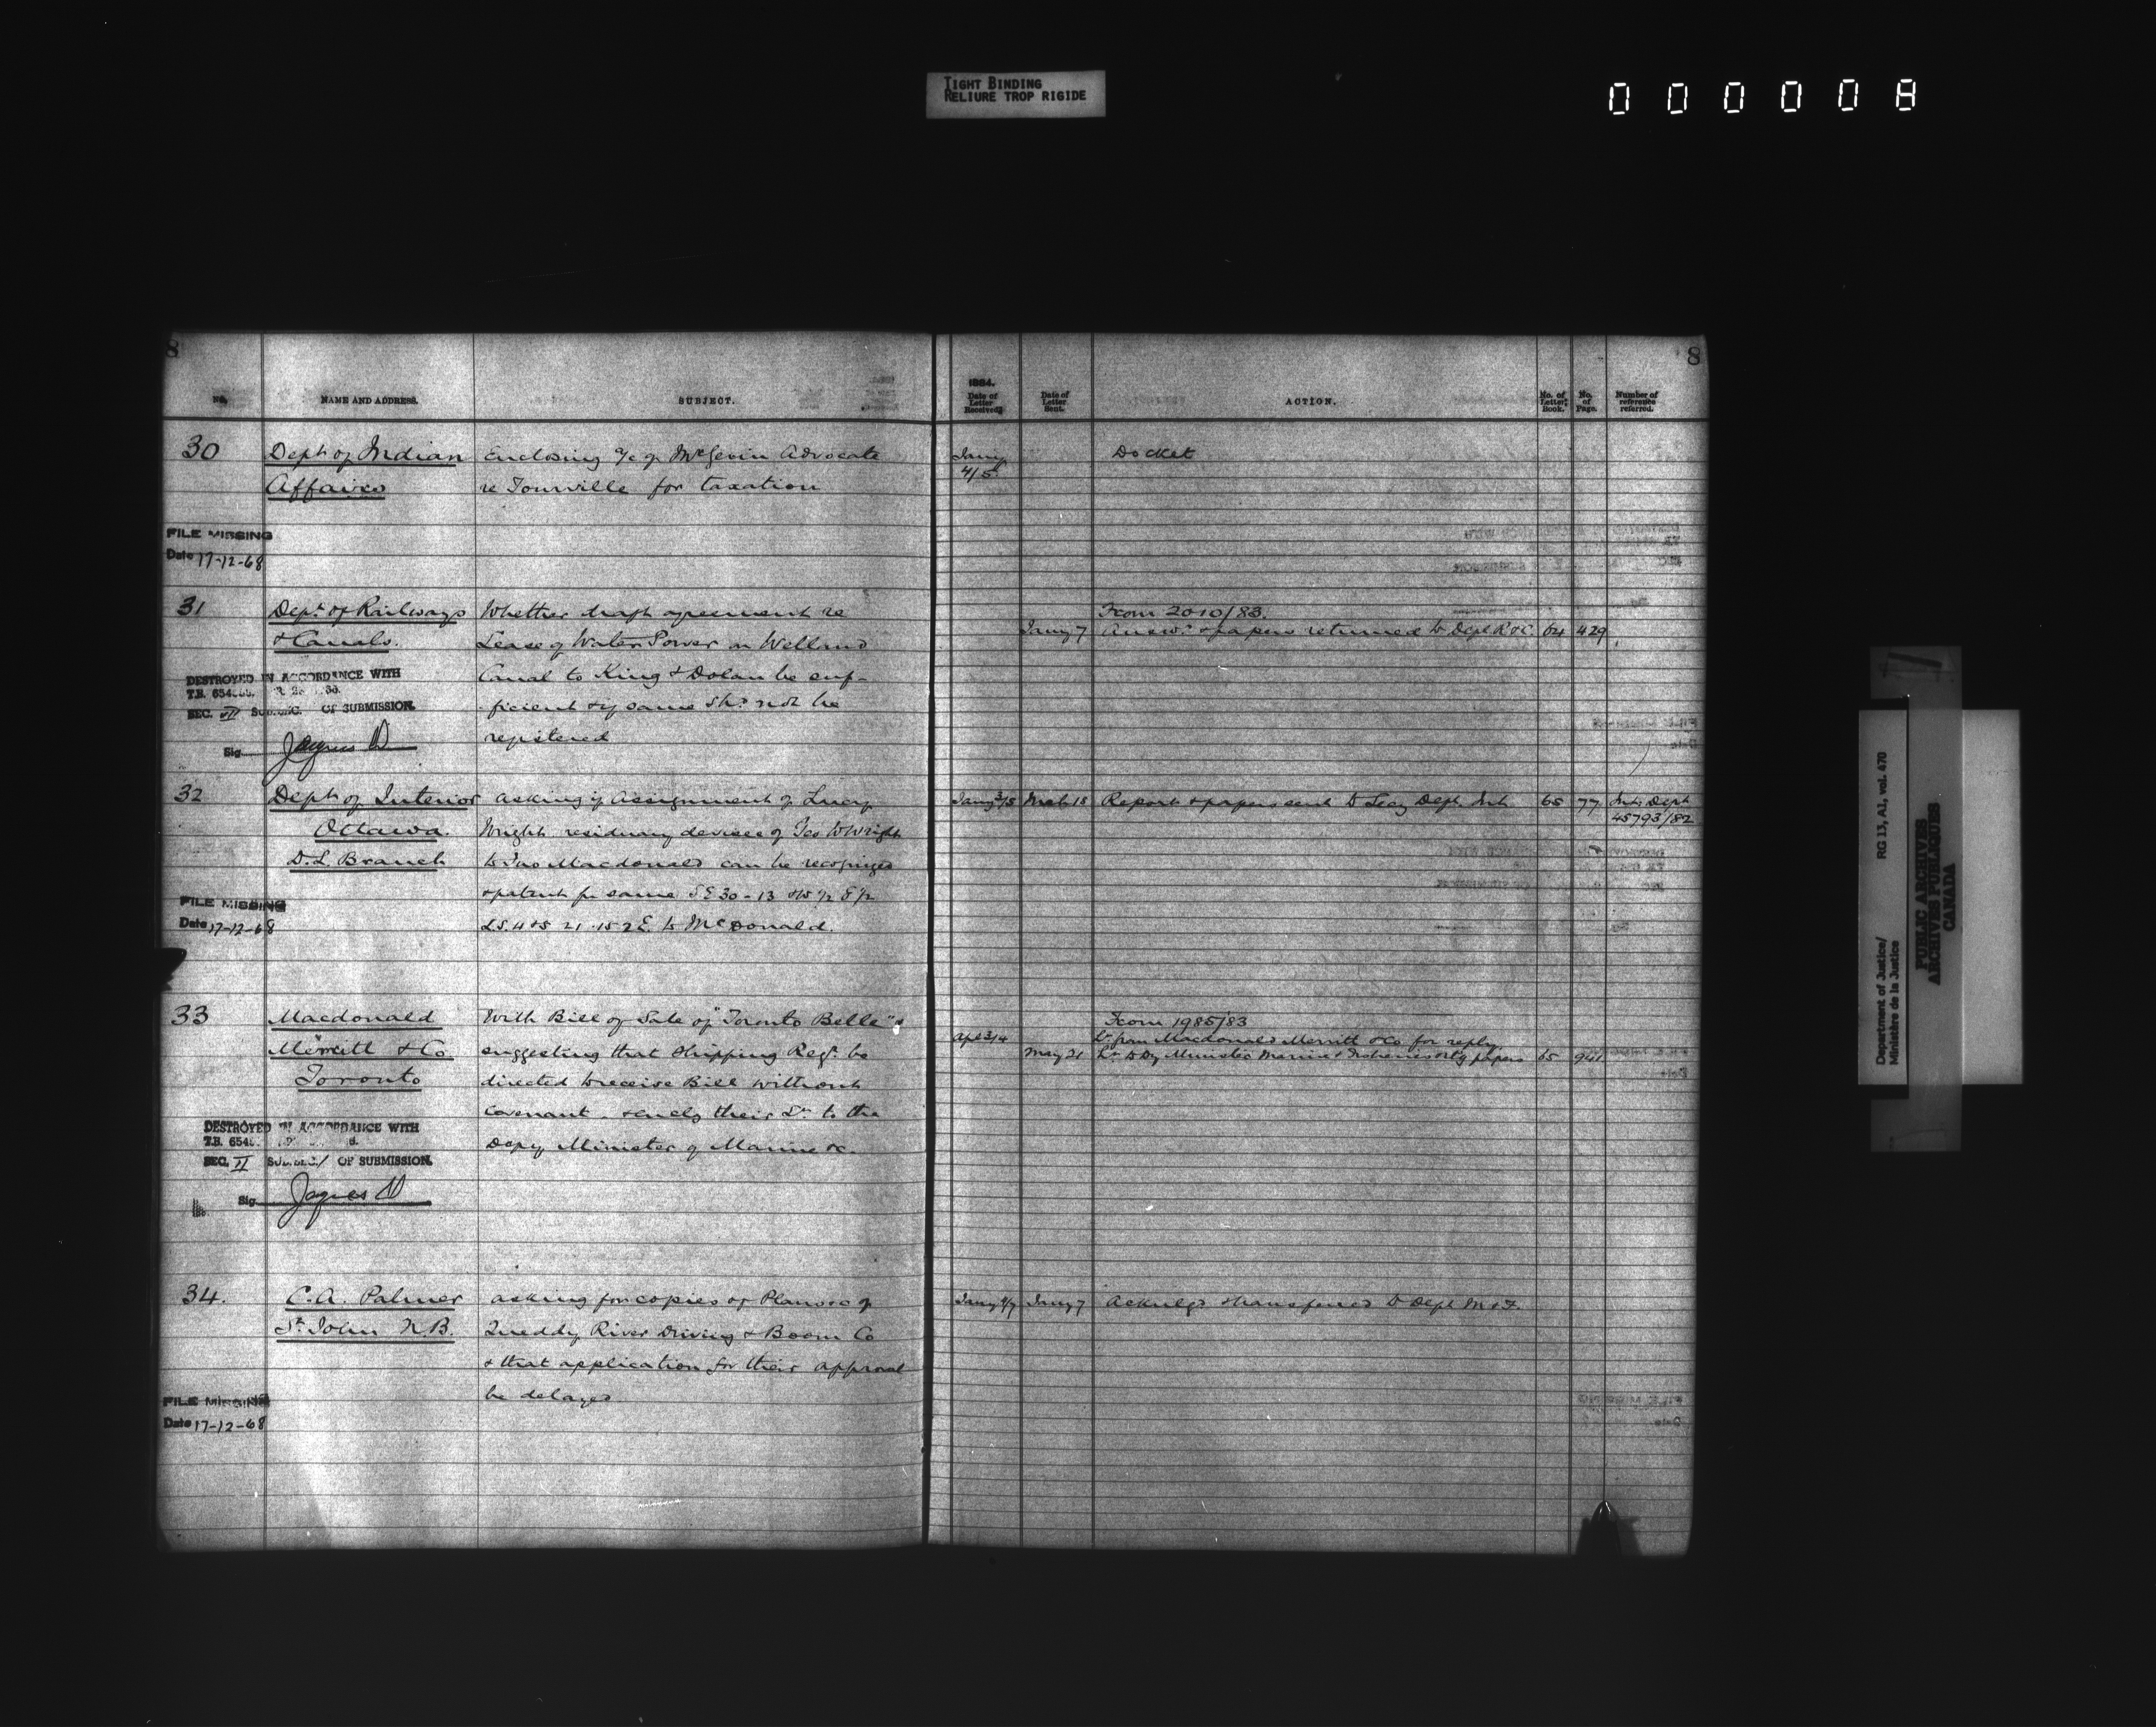 TIGHT BINDING
RELIURE TROP RIGIDE
000008
8
No.
NAME AND ADDRESS.
SUBJECT.
30
Dept of Indian
Affairs
Enclosing a/c of McGevin Advocate
re Tourville for taxation
FILE MISSING
Date 17-12-68
31
Dept of Railways
& Canals.
Whether draft agreement re
Lease of Water Power on Welland
Canal to King & Dolan be suf-
ficient & if same shd not be
registered
DESTROYED IN ACCORDANCE WITH
T.B. 654
SEC. VII OF SUBMISSION.
Sig
32
Dept of Interior
Ottawa.
D.L. Branch
asking if assignment of Lucy
Wright residuary devisee of Geo W Wright
to Jno Macdonald can be recognized
& patent for same S E 30-13 & W 1/2 E 1/2
L.S. 4 & 5 21.15.2 E to McDonald.
FILE MISSING
Date 17-12-68
33
Macdonald
Merritt & Co
Toronto
With Bill of Sale of "Toronto Belle" &
suggesting that Shipping Regr. be
directed to receive Bill without
covenant. & encly their Lr to the
Depy Minister of Marine &c.
DESTROYED IN ACCORDANCE WITH
T.B. 654
SEC. II OF SUBMISSION.
Sig
34.
C.A. Palmer
St. John N.B.
asking for copies of Plans &c of
Queddy River Driving & Boom Co
& that application for their approval
be delayed
FILE MISSING
Date 17-12-68
8
1884.
Date of Letter Received
Date of Letter Sent.
ACTION.
No. of Letter Book.
No. of Page.
Number of reference referred.
Jany 4/5
Docket
From 2010/83.
Jany 7 Answd. & papers returned to Dept R & C. 64 429
Jany 3/5 Mch 18 Report & papers sent to Secy Dept. Int. 65 77 Int. Dept
45793/82
From 1985/83
Apl 3/4 Lr from Macdonald Merritt & Co for reply
May 21 Lr to Dy Minister Marine & Fisheries retg papers 65 941
Jany 4/7 Jany 7 Acknlgd & transferred to Dept M & F.
Department of Justice/
Ministère de la Justice
RG 13, A1, vol. 470
PUBLIC ARCHIVES
ARCHIVES PUBLIQUES
CANADA